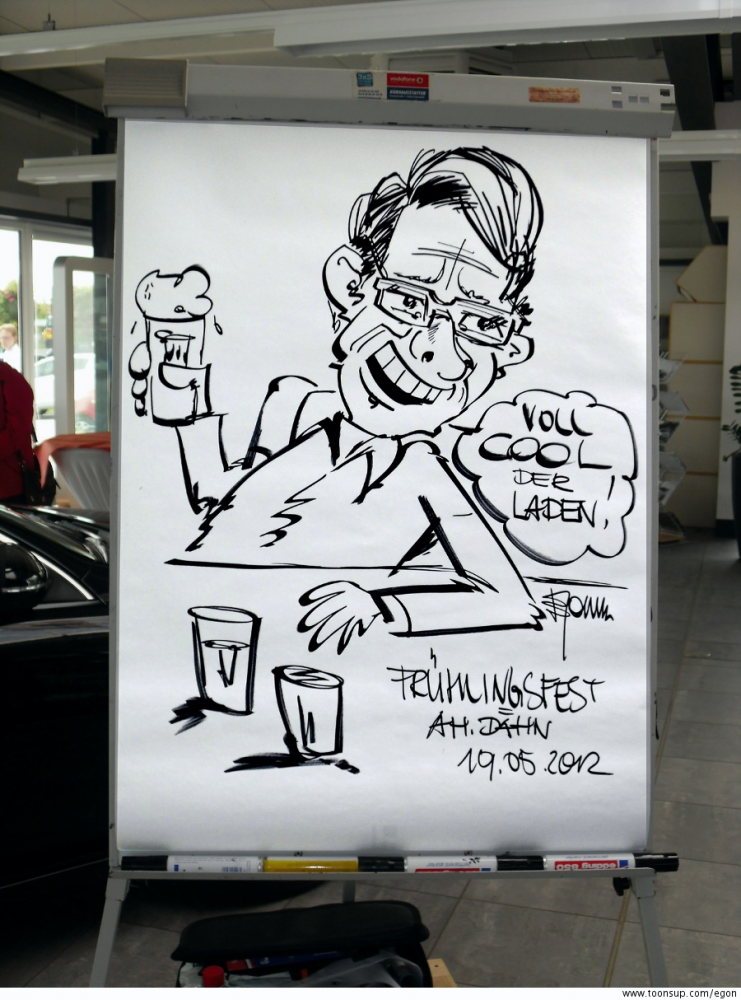 vodafone
VOLL
COOL
DER
LADEN!
FRÜHLINGSFEST
AH. DÄHN
19.05.2012
edding 850
www.toonsup.com/egon